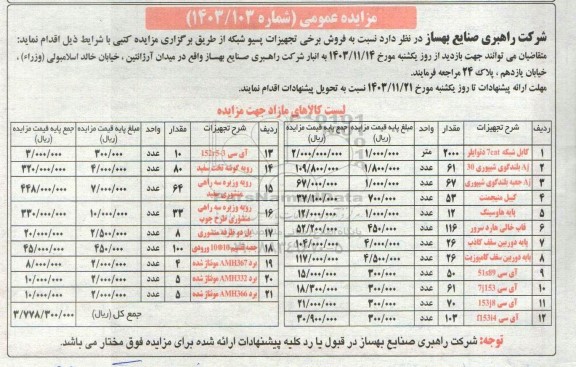 مزایده عمومی (شماره ۱۴۰۳/۱۰۳)
شرکت راهبری صنایع بهساز در نظر دارد نسبت به فروش برخی تجهیزات پسیو شبکه از طریق برگزاری مزایده کتبی با شرایط ذیل اقدام نماید:
متقاضیان می توانند جهت بازدید از روز یکشنبه مورخ ۱۴۰۳/۱۱/۱۴ به انبار شرکت راهبری صنایع بهساز واقع در میدان آرژانتین ، خیابان خالد اسلامبولی (وزراء) ،
خیابان یازدهم ، پلاک ۲۴ مراجعه فرمایند.
مهلت ارائه پیشنهادات تا روز یکشنبه مورخ ۱۴۰۳/۱۱/۲۱ نسبت به تحویل پیشنهادات اقدام نمایند.
لیست کالاهای مازاد جهت مزایده
ردیف شرح تجهیزات مقدار واحد مبلغ پایه قیمت مزایده (ریال) جمع پایه قیمت مزایده (ریال)
۱ کابل شبکه 7cat ۲۰۰۰ متر ۱/۰۰۰/۰۰۰ ۲/۰۰۰/۰۰۰/۰۰۰
۲ بلندگوی شیپوری 30 ۶۱ عدد ۱/۸۰۰/۰۰۰ ۱۰۹/۸۰۰/۰۰۰
۳ جعبه بلندگوی شیپوری ۶۷ عدد ۱/۰۰۰/۰۰۰ ۶۷/۰۰۰/۰۰۰
۴ کیبل منیجمنت ۵۳ عدد ۷۰۰/۰۰۰ ۳۷/۱۰۰/۰۰۰
۵ پایه هاوسینگ ۱۲ عدد ۱/۰۰۰/۰۰۰ ۱۲/۰۰۰/۰۰۰
۶ قاب خالی هارد سرور ۱۱۶ عدد ۴۵۰/۰۰۰ ۵۲/۲۰۰/۰۰۰
۷ پایه دوربین سقف کاذب ۲۶ عدد ۴/۰۰۰/۰۰۰ ۱۰۴/۰۰۰/۰۰۰
۸ پایه دوربین سقف کامپوزیت ۲۶ عدد ۴/۵۰۰/۰۰۰ ۱۱۷/۰۰۰/۰۰۰
۹ آی سی ۵۰ عدد ۳۰۰/۰۰۰ ۱۵/۰۰۰/۰۰۰
۱۰ آی سی 7j153 ۶۱ عدد ۳۰۰/۰۰۰ ۱۸/۳۰۰/۰۰۰
۱۱ آی سی 153j8 ۷۰ عدد ۳۰۰/۰۰۰ ۲۱/۰۰۰/۰۰۰
۱۲ آی سی ۱۰۳ عدد ۳۰۰/۰۰۰ ۳۰/۹۰۰/۰۰۰
ردیف شرح تجهیزات مقدار واحد مبلغ پایه قیمت مزایده (ریال) جمع پایه قیمت مزایده (ریال)
۱۳ آی سی ۱۰ عدد ۳۰۰/۰۰۰ ۳/۰۰۰/۰۰۰
۱۴ رویه گوشه تخت سفید ۸۰ عدد ۴/۰۰۰/۰۰۰ ۳۲۰/۰۰۰/۰۰۰
۱۵ رویه ویژه سه راهی منشوری سفید ۶۴ عدد ۷/۰۰۰/۰۰۰ ۴۴۸/۰۰۰/۰۰۰
۱۶ رویه ویژه سه راهی منشوری طرح چوب ۳۳ عدد ۱۰/۰۰۰/۰۰۰ ۳۳۰/۰۰۰/۰۰۰
۱۷ پل دو طرفه منشوری ۸ عدد ۲/۵۰۰/۰۰۰ ۲۰/۰۰۰/۰۰۰
۱۸ 10Φ10 ورودی ۱۰۰ عدد ۴۵۰/۰۰۰ ۴۵/۰۰۰/۰۰۰
۱۹ برد AMH367 مونتاژ شده ۴ عدد ۲/۰۰۰/۰۰۰ ۸/۰۰۰/۰۰۰
۲۰ برد AMH332 مونتاژ شده ۵ عدد ۲/۰۰۰/۰۰۰ ۱۰/۰۰۰/۰۰۰
۲۱ برد AMH366 مونتاژ شده ۵ عدد ۲/۰۰۰/۰۰۰ ۱۰/۰۰۰/۰۰۰
جمع کل (ریال) ۳/۷۷۸/۳۰۰/۰۰۰
توجه: شرکت راهبری صنایع بهساز در قبول یا رد کلیه پیشنهادات ارائه شده برای مزایده فوق مختار می باشد.